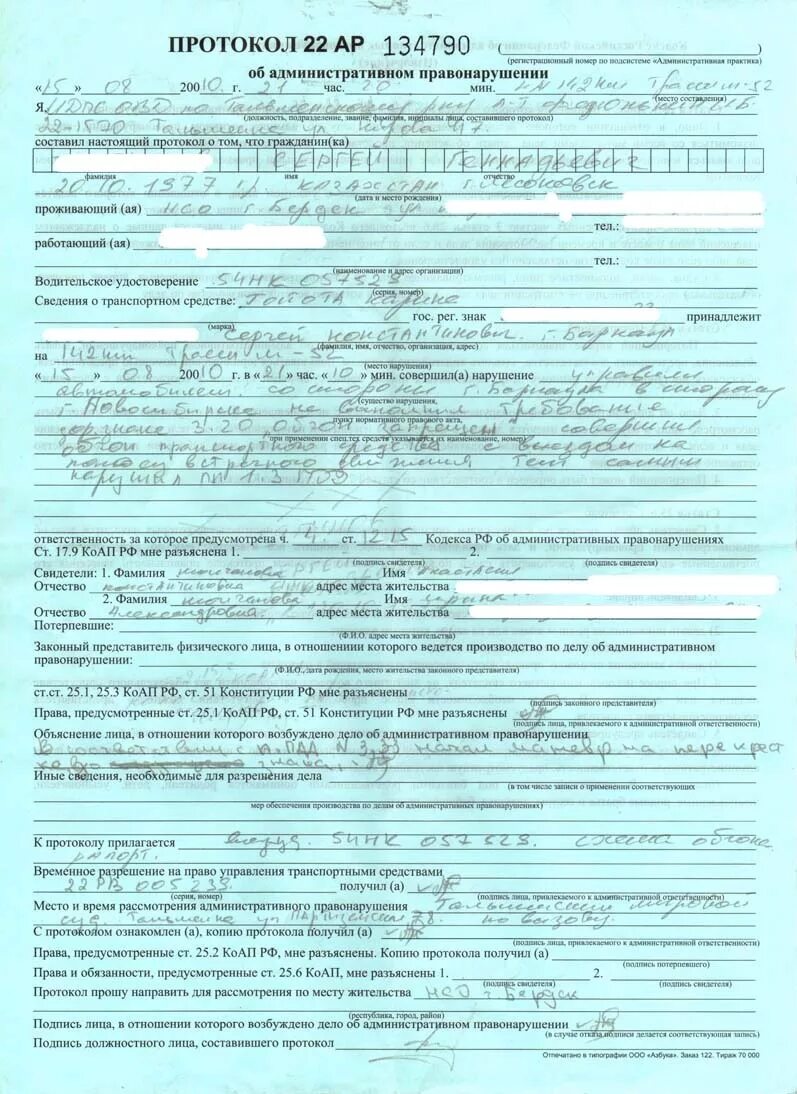 ПРОТОКОЛ 22 АР 134790 ( )
(регистрационный номер по подсистеме «Административная практика»)
об административном правонарушении
«15» 08 20010 г. 21 час. 20 мин. 142 км Трассы М-52
(место составления)
Я, ИДПС ОВД по Тальменскому р-ну
(должность, подразделение, звание, фамилия, инициалы лица, составившего протокол)
Тальменка ул. Кирова 47
составил настоящий протокол о том, что гражданин(ка)
СЕРГЕЙ ГЕННАДЬЕВИЧ
фамилия имя отчество
20.10.1977 г.
(дата и место рождения)
проживающий (ая) НСО г. Бердск ул
тел.:
работающий (ая)
тел.:
(наименование и адрес организации)
Водительское удостоверение 54НК 057523
(серия, номер)
Сведения о транспортном средстве: ТОЙОТА Карина
гос. рег. знак 22 принадлежит
(марка)
Сергей Константинович. г. Барнаул
(фамилия, имя, отчество, организация, адрес)
на 142 км Трассы М-52
(место нарушения)
«15» 08 20010 г. в «21» час. «10» мин. совершил(а) нарушение управляя
автомобилем со стороны г. Барнаула в сторону
(существо нарушения,
г. Новосибирска не выполнил требование
пункт нормативного правового акта,
дор. знака 3.20 обгон запрещен совершил
при применении спец.тех средств указывается их наименование, номер)
обгон транспортного средства с выездом на
полосу встречного движения, тем самым
нарушил п.п. 1.3 ПДД
ответственность за которое предусмотрена ч. 4 ст. 12.15 Кодекса РФ об административных правонарушениях
Ст. 17.9 КоАП РФ мне разъяснена 1. 2.
(подпись свидетеля) (подпись свидетеля)
Свидетели: 1. Фамилия Имя Анастасия
Отчество Константиновна адрес места жительства
2. Фамилия Имя Ирина
Отчество Александровна. адрес места жительства
Потерпевшие:
(Ф.И.О. адрес места жительства)
Законный представитель физического лица, в отношениии которого ведется производство по делу об административном
правонарушении:
(Ф.И.О., дата рождения, место жительства законного представителя)
ст.ст. 25.1, 25.3 КоАП РФ, ст. 51 Конституции РФ мне разъяснены
(подпись законного представителя)
Права, предусмотренные ст. 25.1 КоАП РФ, ст. 51 Конституции РФ мне разъяснены
(подпись лица, привлекаемого к административной ответственности)
Объяснение лица, в отношении которого возбуждено дело об административном правонарушении
В соответствии с п. ПДД N начал маневр на перекрест
ке, до знака,
Иные сведения, необходимые для разрешения дела
(в том числе записи о применении соответствующих
мер обеспечения производства по делам об административных правонарушениях)
К протоколу прилагается вод.уд. 54НК 057523. схема обгона
рапорт.
Временное разрешение на право управления транспортными средствами
22РВ 005233 получил (а)
(серия, номер) (подпись лица, привлекаемого к административной ответственности)
Место и время рассмотрения административного правонарушения Тальменский мировой
суд Тальменка ул Партизанская 78 по вызову.
С протоколом ознакомлен (а), копию протокола получил (а)
(подпись лица, привлекаемого к административной ответственности)
Права, предусмотренные ст. 25.2 КоАП РФ, мне разъяснены. Копию протокола получил (а)
(подпись потерпевшего)
Права и обязанности, предусмотренные ст. 25.6 КоАП, мне разъяснены 1. 2.
(подпись свидетеля) (подпись свидетеля)
Протокол прошу направить для рассмотрения по месту жительства НСО г Бердск
(республика, город, район)
Подпись лица, в отношении которого возбуждено дело об административном правонарушении
(в случае отказа подписи делается соответствующая запись)
Подпись должностного лица, составившего протокол
Отпечатано в типографии ООО «Азбука». Заказ 122. Тираж 70 000